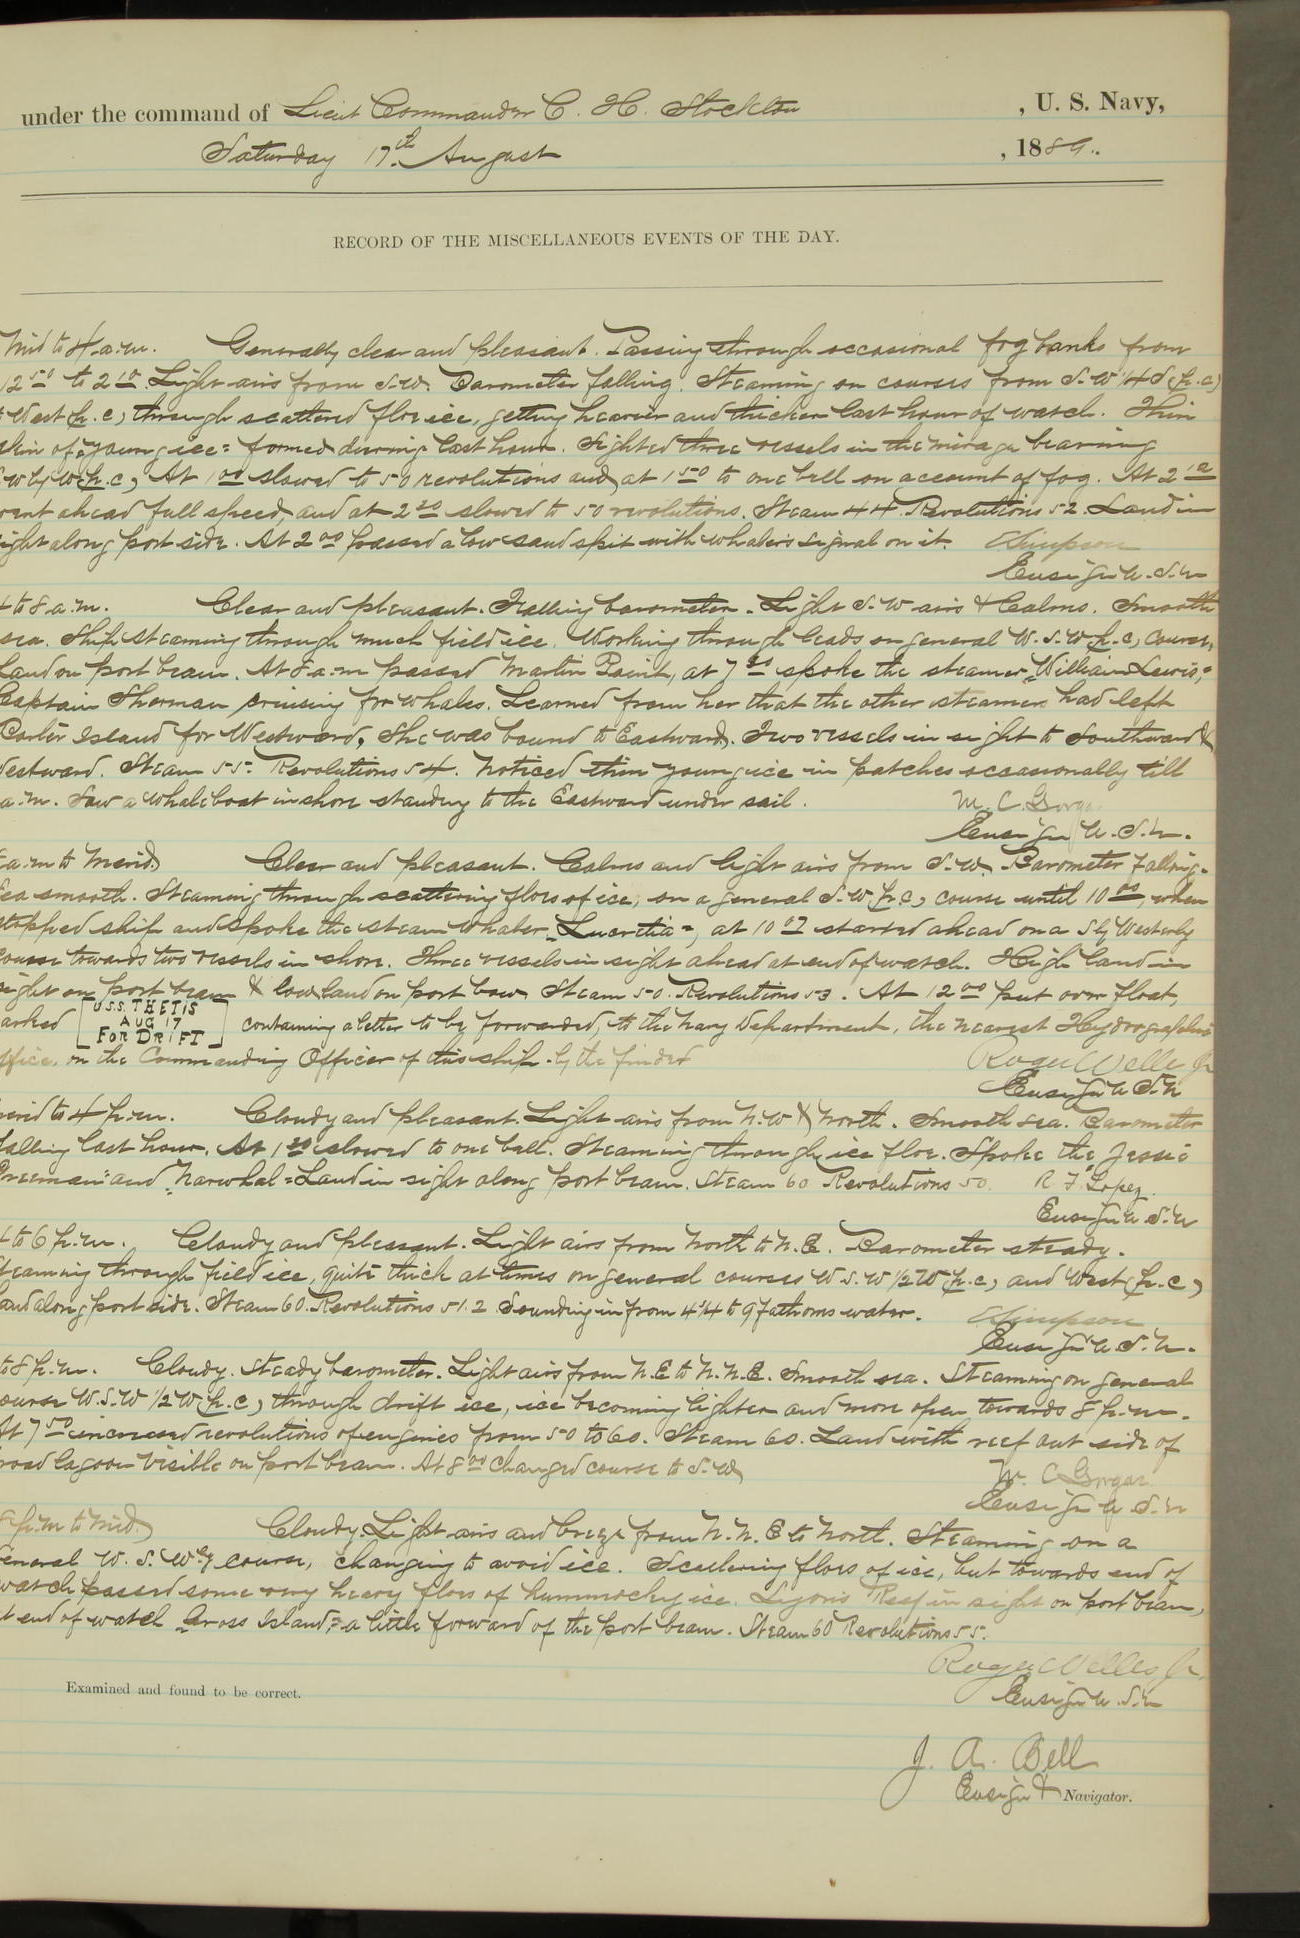 under the command of Lieut Commander C. H. Stockton , U. S. Navy,
Saturday 17th. August , 1889.
RECORD OF THE MISCELLANEOUS EVENTS OF THE DAY.
Mid to 4 a.m. Generally clear and pleasant. Passing through occasional fog banks from
12 50 to 2 10 Light airs from S.W. Barometer falling. Steaming on courses from S.W 1/4 S (p.c)
West (p.c) through scattered floe ice, getting heavier and thicker last hour of watch. Thin
skin of "young ice" formed during last hour. Sighted three vessels in the mirage bearing
W by W (p.c) At 1 00 slowed to 50 revolutions and at 1 50 to one bell on account of fog. At 2 10
went ahead full speed, and at 2 20 slowed to 50 revolutions. Steam 44. Revolutions 52. Land in
sight along port side. At 2 00 passed a low sand spit with whaler's signal on it. E Simpson
Ensign U.S.N
4 to 8 a.m. Clear and pleasant. Falling barometer. Light S.W airs & Calms. Smooth
sea. Ship steaming through much field ice. Working through leads on general W.S.W (p.c) course,
Land on port beam. At 8 a.m passed Martin Point, at 7 30 spoke the steamer "William Lewis,"
Captain Sherman cruising for whales. Learned from her that the other steamers had left
Barter Island for Westward, She was bound to Eastward. Two vessels in sight to Southward &
Westward. Steam 55. Revolutions 54. Noticed thin young ice in patches occasionally till
a.m. Saw a whaleboat in shore standing to the Eastward under sail. M. C. Gorgas
Ensign U.S.N.
a.m to Merid Clear and pleasant. Calms and light airs from S.W. Barometer falling.
Sea smooth. Steaming through scattering floes of ice, on a general S.W (p.c) course until 10 00, when
stopped ship and spoke the steam whaler "Lucretia", at 10 07 started ahead on a S'ly Westerly
course towards two vessels in shore. Three vessels in sight ahead at end of watch. High land in
sight on port beam & low land on port bow. Steam 50. Revolutions 53. At 12 00 put over float,
marked [U.S.S. THETIS
AUG 17
FOR DRIFT] containing a letter to be forwarded, to the Navy Department, the nearest Hydrographic
office, on the Commanding Officer of this ship. by the finder Roger Welles Jr
Ensign U.S.N
Merid to 4 p.m. Cloudy and pleasant. Light airs from N.W & North. Smooth sea. Barometer
falling last hour. At 1 20 slowed to one bell. Steaming through ice floe. Spoke the "Jessie
Freeman" and "Narwhal" Land in sight along port beam. Steam 60 Revolutions 50. R. F. Lopez.
Ensign U.S.N
4 to 6 p.m. Cloudy and pleasant. Light airs from North to N.E. Barometer steady.
Steaming through field ice, quite thick at times on general courses W.S.W 1/2 W (p.c) and West (p.c)
Land along port side. Steam 60. Revolutions 51.2 Sounding in from 4 1/4 to 9 fathoms water. E Simpson
Ensign U.S.N.
to 8 p.m. Cloudy. Steady barometer. Light airs from N.E to N.N.E. Smooth sea. Steaming on general
course W.S.W 1/2 W (p.c) through drift ice, ice becoming lighter and more open towards 8 p.m.
At 7 50 increased revolutions of engines from 50 to 60. Steam 60. Land with reef out side of
broad lagoon visible on port beam. At 8 00 changed course to S.W M. C Gorgas
Ensign U.S.N
8 p.m to Mid. Cloudy. Light airs and breeze from N.N.E to North. Steaming on a
general W.S.W'ly course, changing to avoid ice. Scattering floes of ice, but towards end of
watch passed some very heavy floes of hummocky ice. Reef in sight on port beam,
at end of watch "Cross Island," a little forward of the port beam. Steam 60 Revolutions 55.
Roger Welles, Jr.
Ensign U.S.N
Examined and found to be correct.
J. A. Bell
Ensign & Navigator.